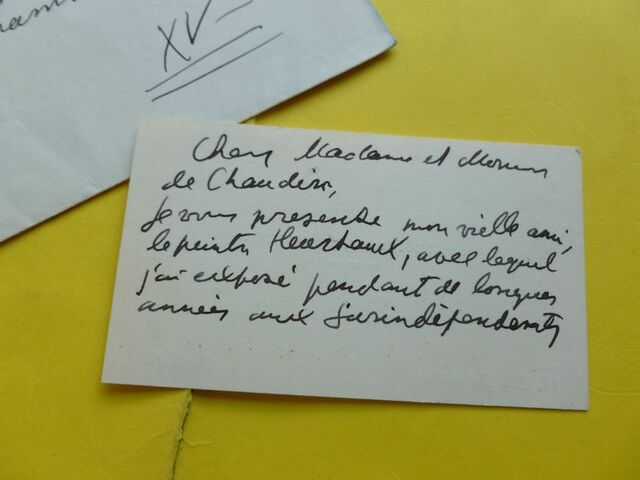 XV
Chers Madame et Monsieur
de Chaudin,
Je vous presente mon vielle ami,
le peintre Heurtaux, avec lequel
j'ai exposé pendant de longues
années aux Surindépendants